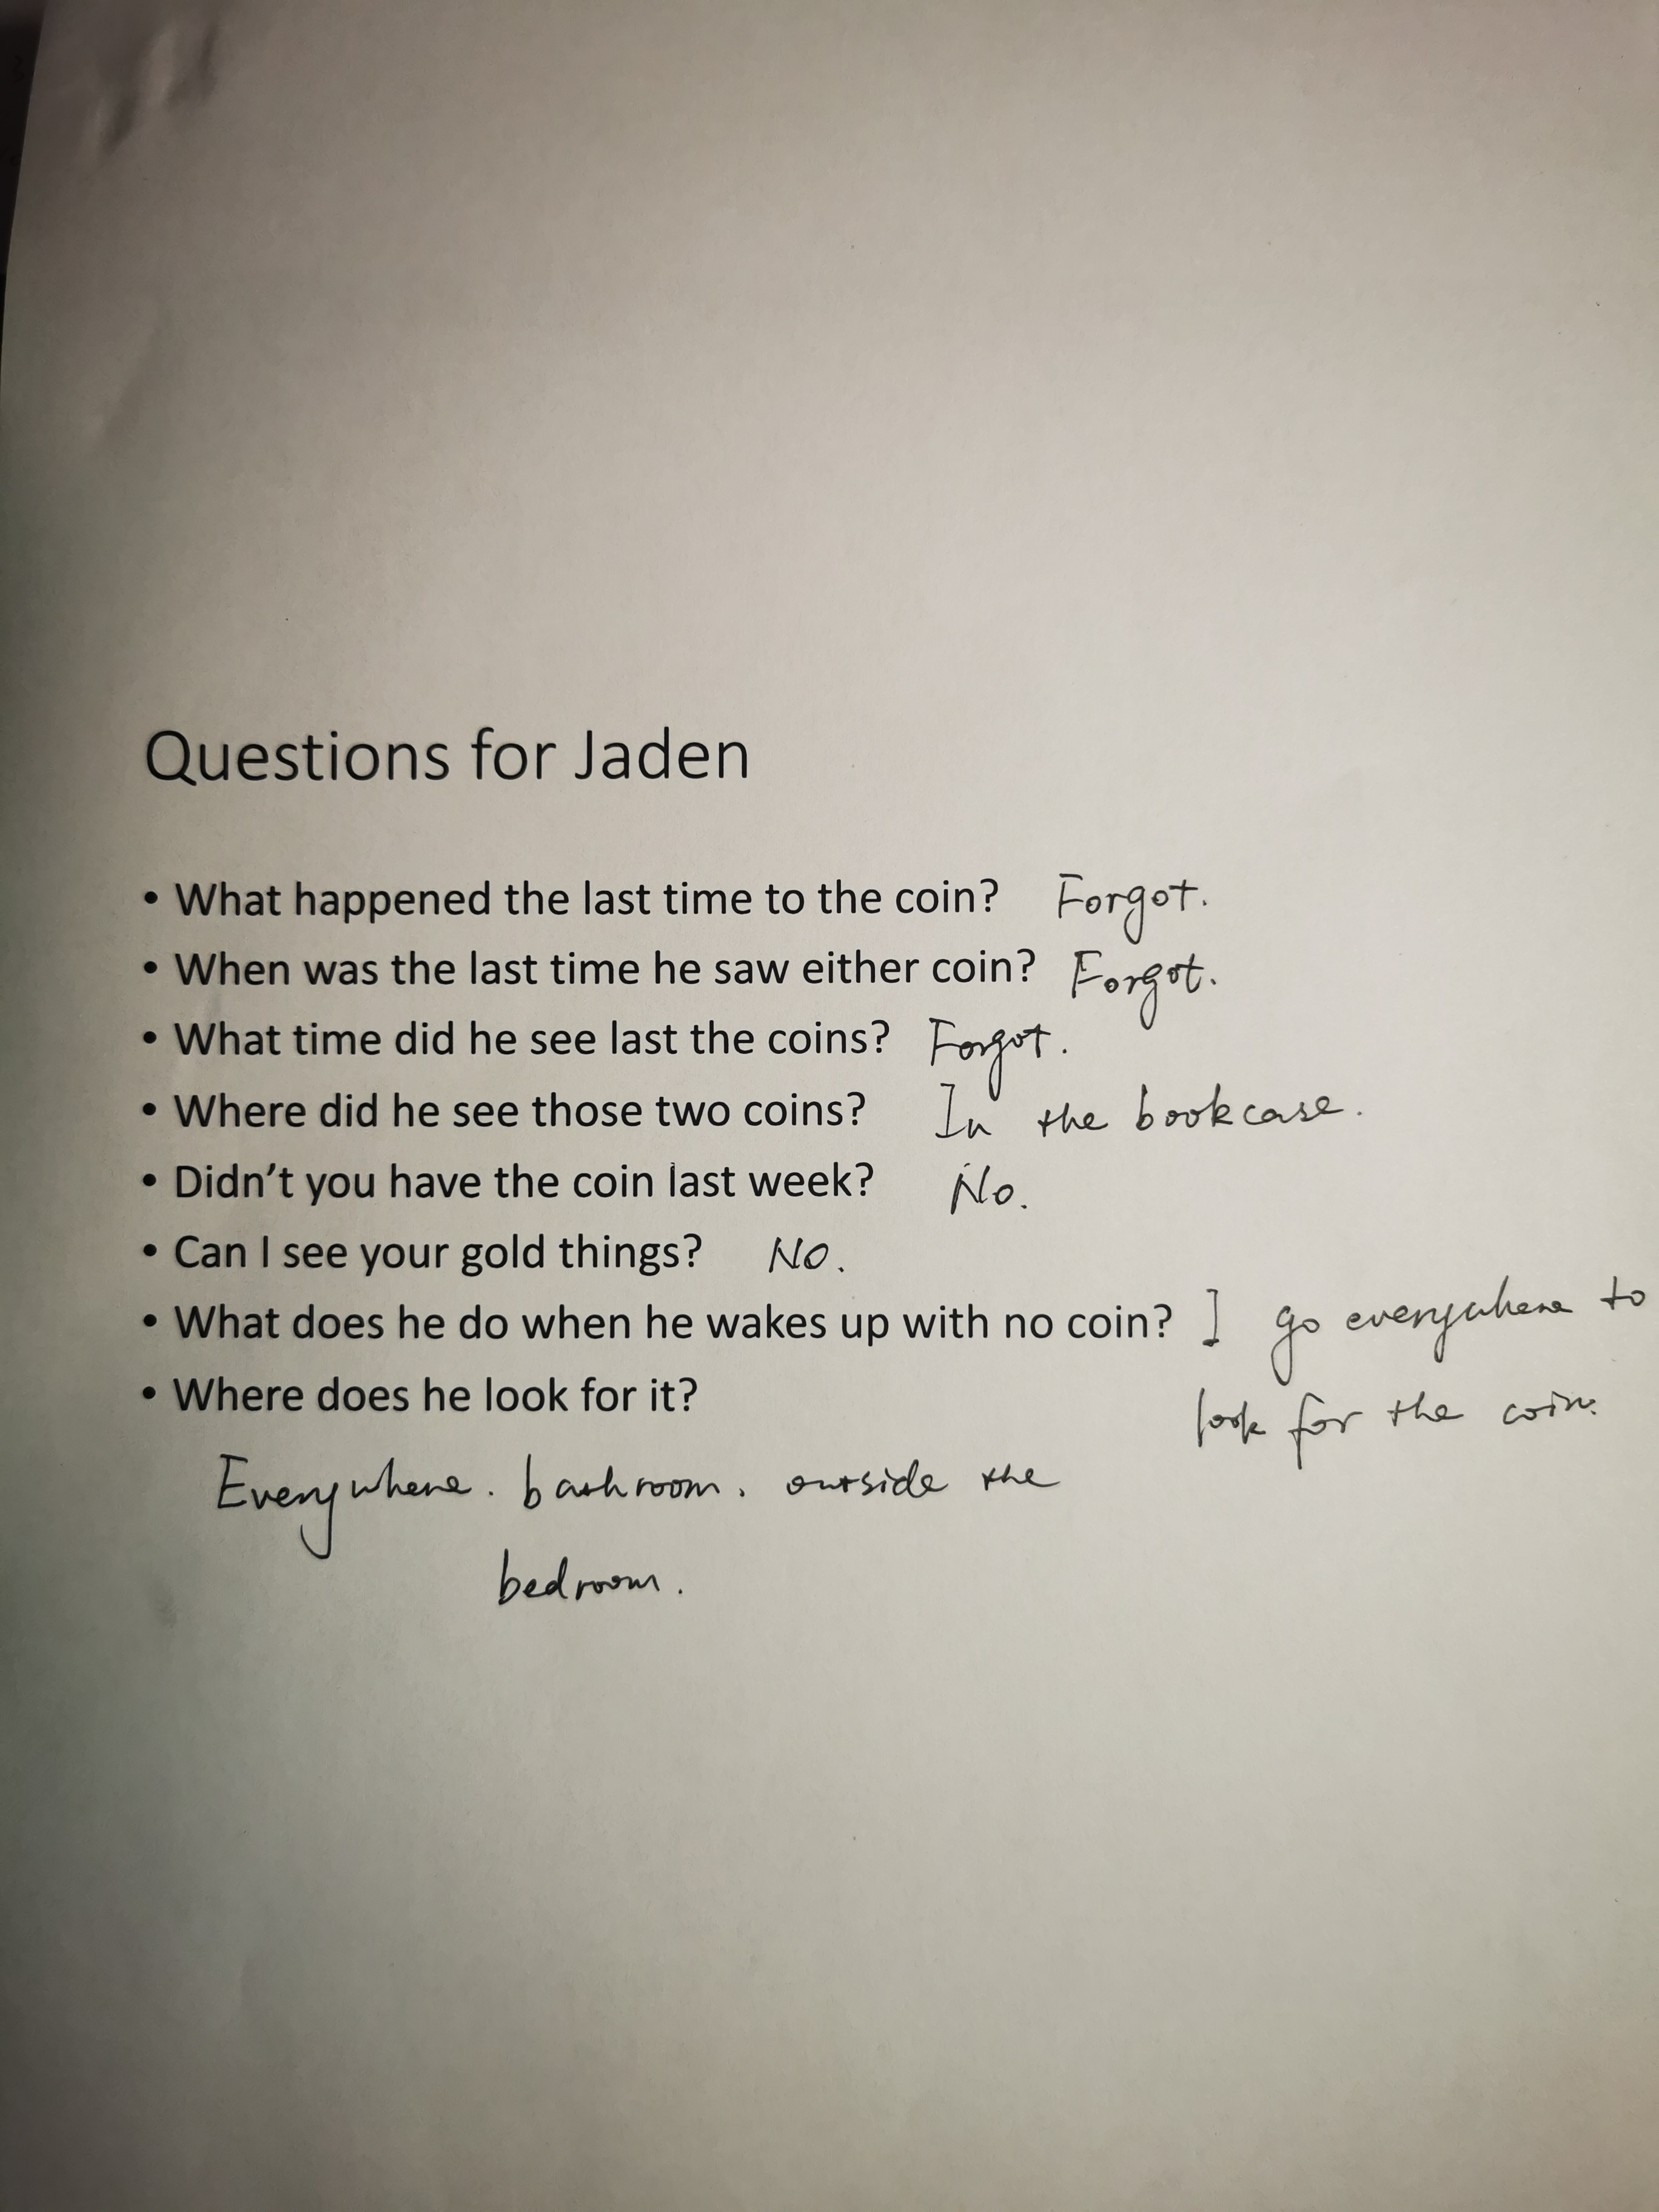 Questions for Jaden
• What happened the last time to the coin? Forgot.
• When was the last time he saw either coin? Forgot.
• What time did he see last the coins? Forgot.
• Where did he see those two coins? In the bookcase.
• Didn't you have the coin last week? No.
• Can I see your gold things? NO.
• What does he do when he wakes up with no coin? I go everywhere to
look for the coin.
• Where does he look for it?
Everywhere. bathroom. outside the
bedroom.